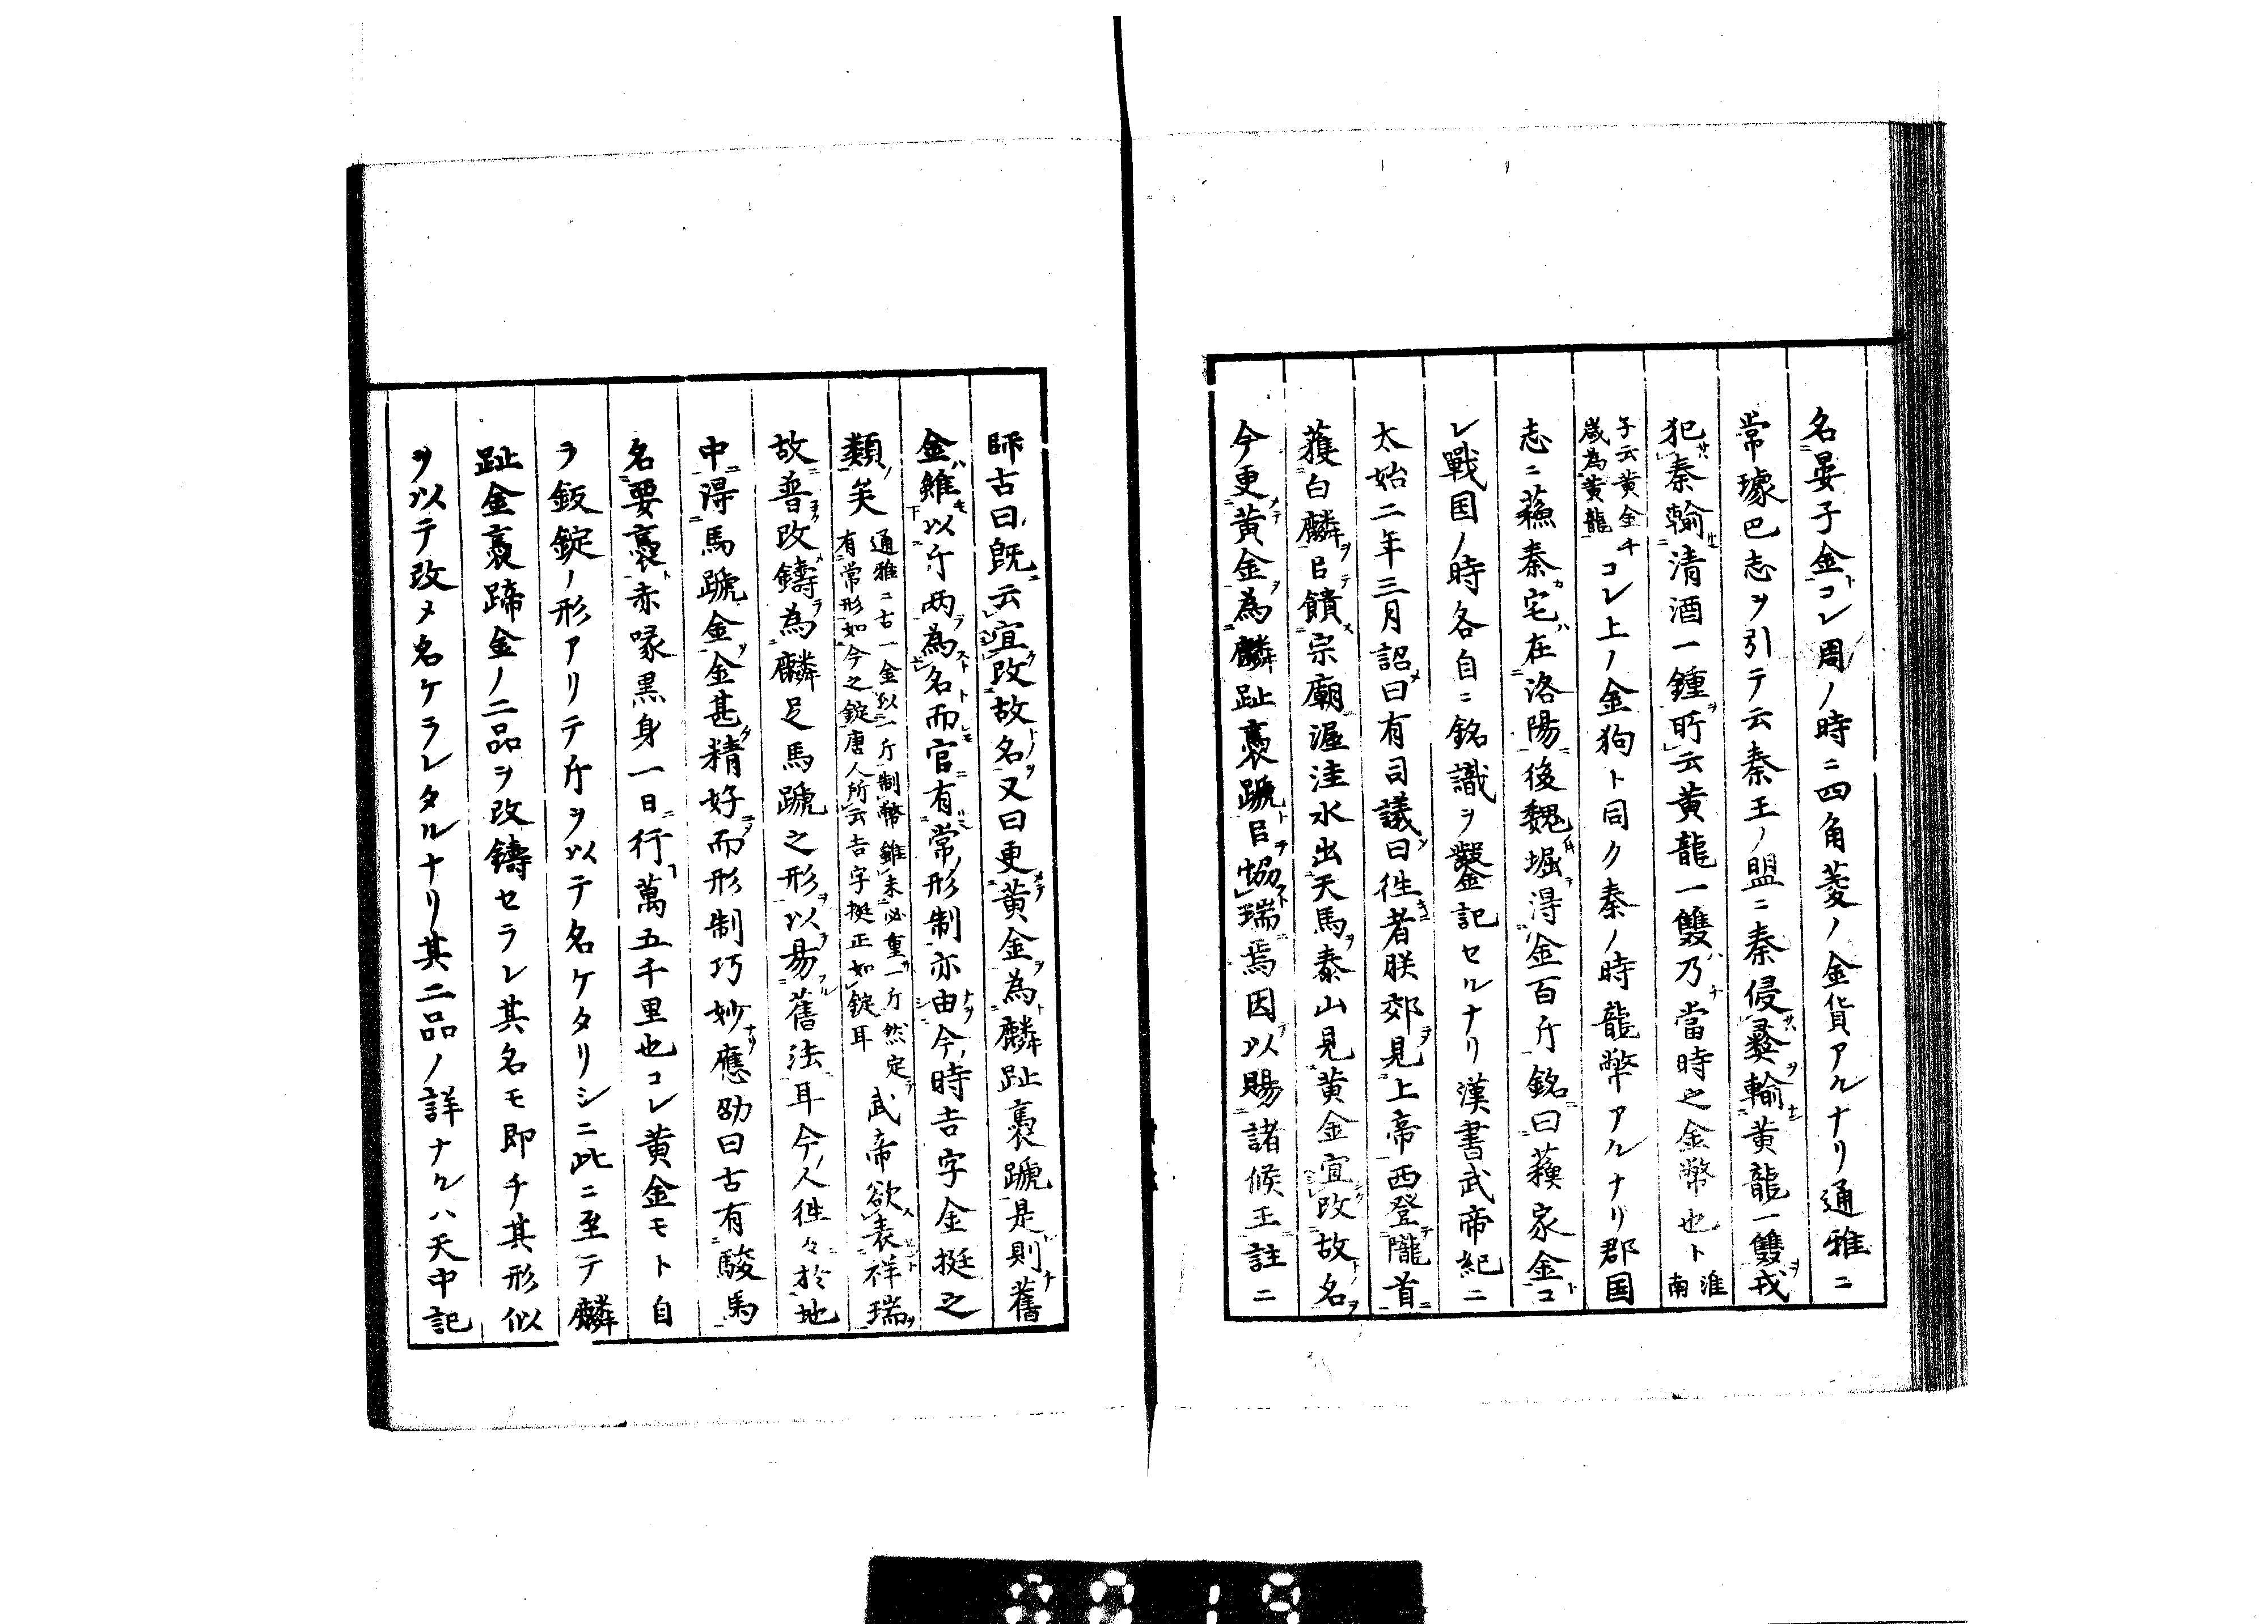 名晏子金コレ周ノ時ニ四角菱ノ金貨アルナリ通雅ニ
常璩巴志ヲ引テ云秦王ノ盟ニ秦侵彜輸黄龍一雙戎
犯秦輸清酒一鍾所云黄龍一雙乃當時之金幣也ト淮南
子云黄金千歳為黄龍コレ上ノ金狗ト同ク秦ノ時龍幣アルナリ郡国
志ニ蘓秦宅在洛陽後魏堀得金百斤銘曰蘓家金コ
レ戰国ノ時各自ニ銘識ヲ鑿記セルナリ漢書武帝紀ニ
太始二年三月詔曰有司議曰徃者朕郊見上帝西登隴首
蒦白麟㠯饋宗廟渥洼水出天馬泰山見黄金宜改故名
今更黄金為麟趾褭蹏㠯協瑞焉因以賜諸候王註ニ
師古曰既云宜改故名又曰更黄金為麟趾褭蹏是則舊
金雖以斤两為名而官有常形制亦由今時吉字金挺之
類矣通雅ニ古一金以一斤制幣雖未必重一斤然定有常形如今之錠唐人所云吉字挺正如錠耳武帝欲表祥瑞
故普改鑄為麟足馬蹏之形以易舊法耳今人徃々於地
中得馬蹏金金甚精好而形制巧妙應劭曰古有駿馬
名要褭赤喙黒身一日行萬五千里也コレ黄金モト自
ラ鈑錠ノ形アリテ斤ヲ以テ名ケタリシニ此ニ至テ麟
趾金褭蹄金ノ二品ヲ改鑄セラレ其名モ即チ其形似
ヲ以テ改メ名ケラレタルナリ其二品ノ詳ナルハ天中記
0019